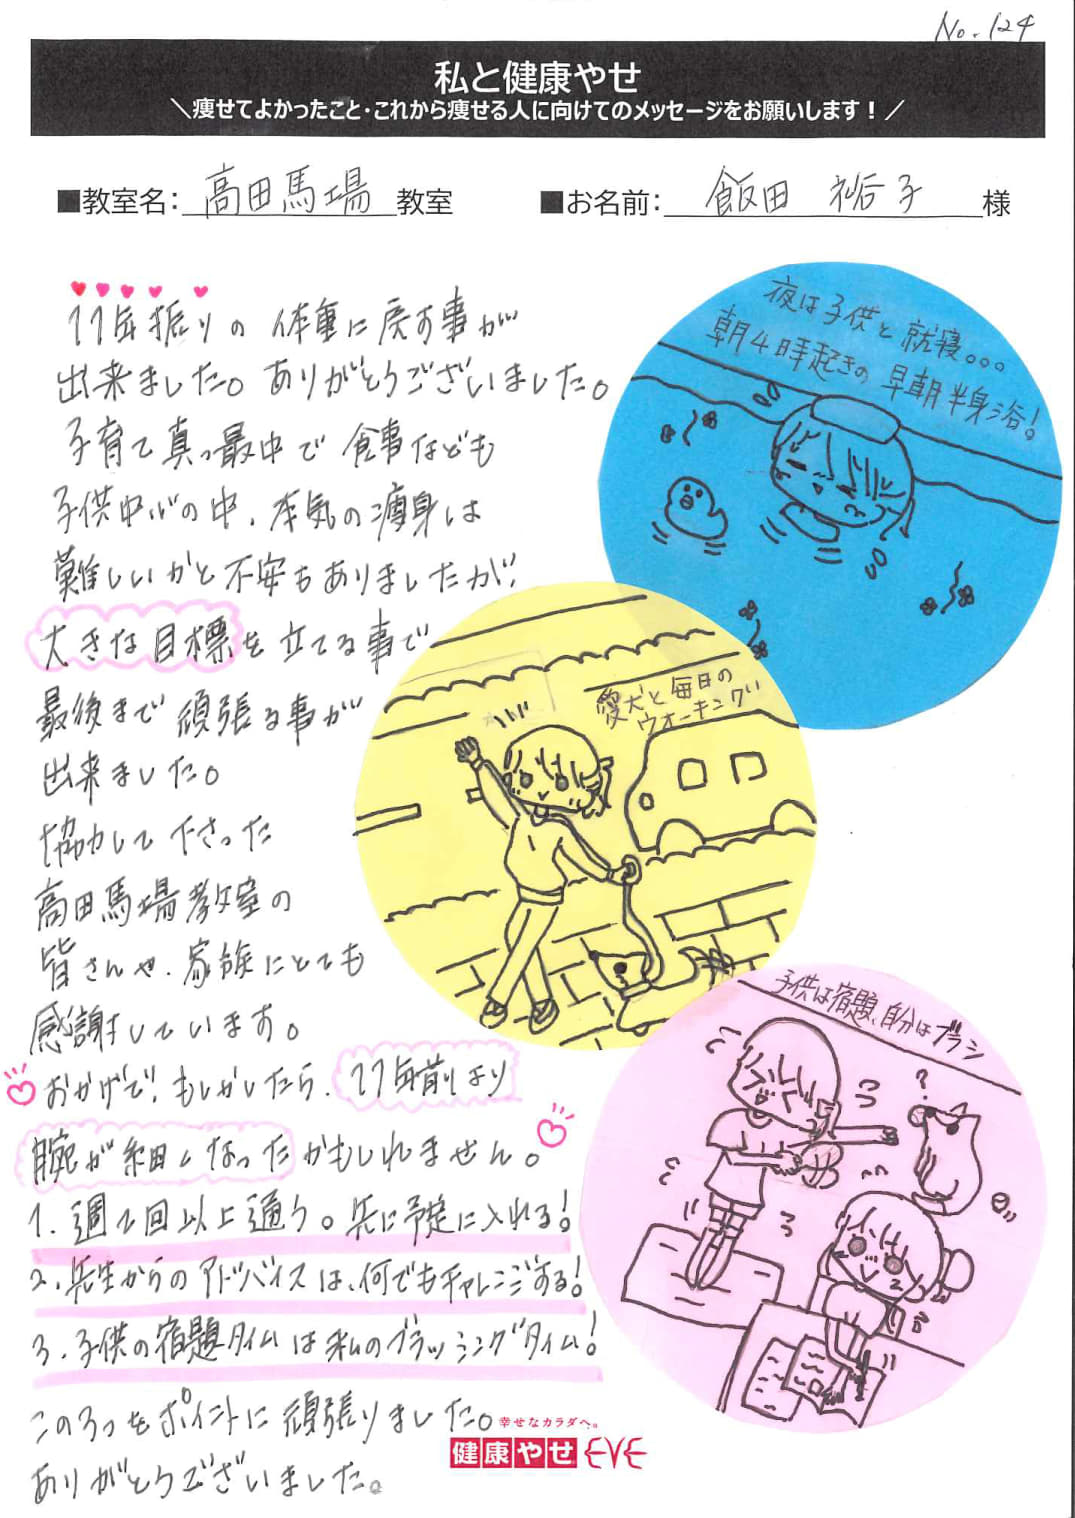 No.124
私と健康やせ
＼痩せてよかったこと・これから痩せる人に向けてのメッセージをお願いします！／
■教室名：高田馬場教室
■お名前：飯田 裕子様
夜は子供と就寝。。。
朝4時起きの早朝半身浴！
11年振りの体重に戻す事が
出来ました。ありがとうございました。
子育て真っ最中で食事なども
子供中心の中、本気の痩身は
難しいかと不安もありましたが、
大きな目標を立てる事で
最後まで頑張る事が
出来ました。
協力して下さった
高田馬場教室の
皆さんや、家族にとても
感謝しています。
おかげで！もしかしたら、11年前より
腕が細くなったかもしれません。
1. 週2回以上通う。先に予定に入れる！
2. 先生からのアドバイスは、何でもチャレンジする！
3. 子供の宿題タイムは私のブラッシングタイム！
この3つをポイントに頑張りました。
ありがとうございました。
愛犬と毎日の
ウオーキング
子供は宿題、自分はブラシ
?
幸せなカラダへ。
健康やせEVE